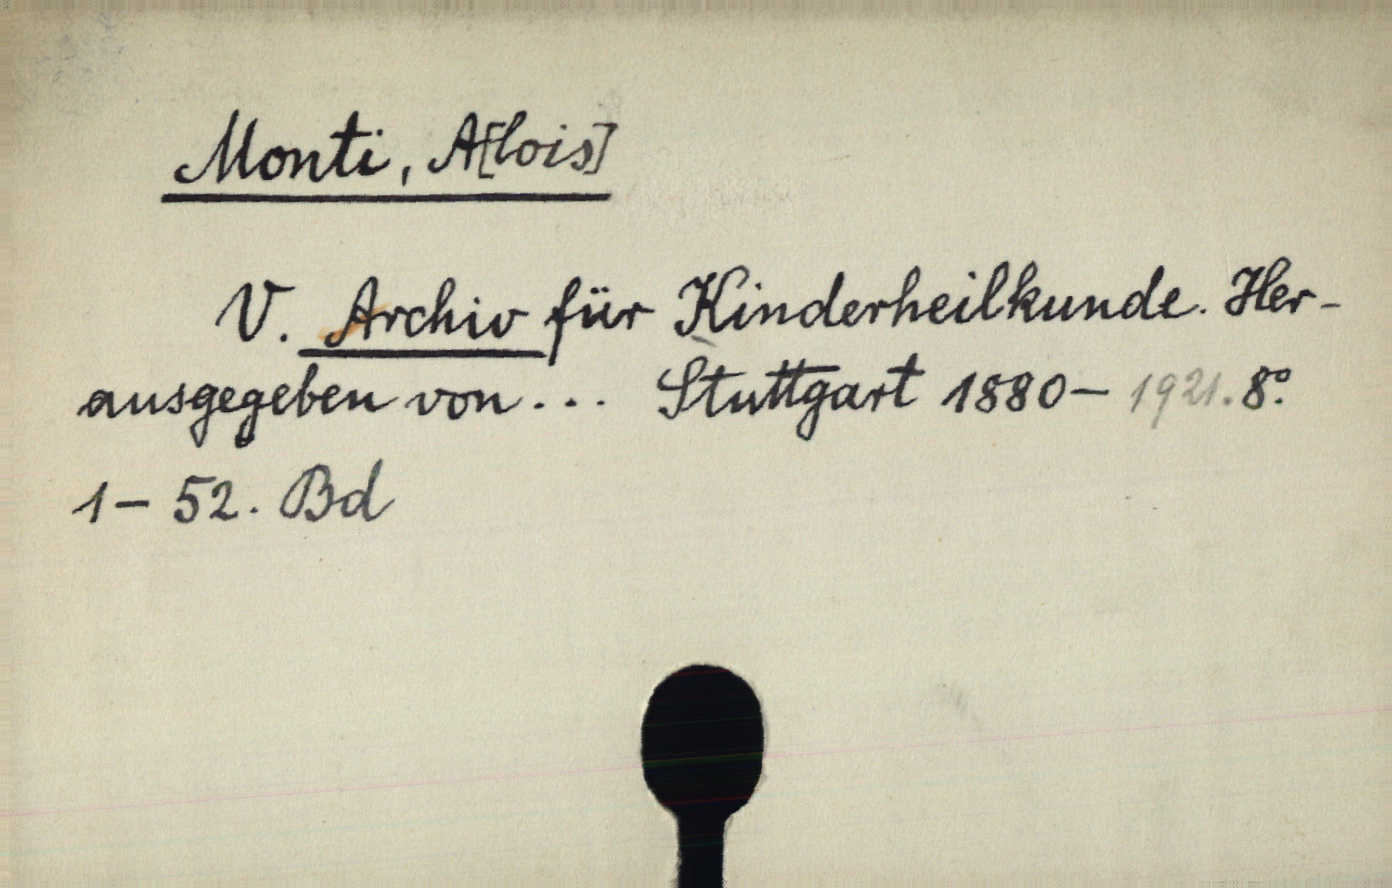 Monti, A[lois]
V. Archiv für Kinderheilkunde. Her-
ausgegeben von... Stuttgart 1880- 1921. 8°.
1- 52. Bd